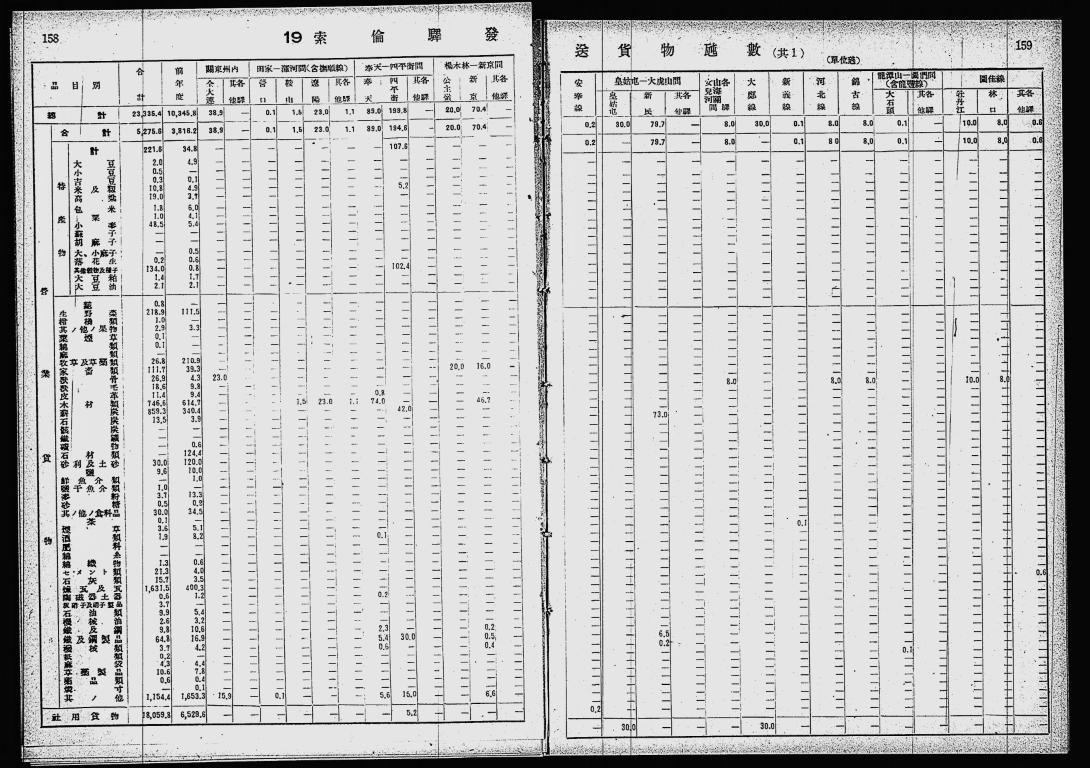 158
19 索倫驛發
品目別 合計 前年度 關東州內 田家—蓋河間(含撫順線) 奉天—四平街間 楊木林—新京間
大連 其各他驛 營口 鞍山 遼陽 其各他驛 奉天 四平街 其各他驛 公主嶺 新京 其各他驛
總計 23,335.4 10,345.8 38.9 — 0.1 1.5 23.0 1.1 89.0 199.8 — 20.0 70.4 —
合計 5,275.6 3,816.2 38.9 — 0.1 1.5 23.0 1.1 89.0 194.6 — 20.0 70.4 —
計 221.6 34.8 107.6
大豆 2.0 4.9
小豆 0.5 —
吉豆 0.3 0.1
米及籾 10.8 4.9 5.2
高粱 19.0 3.7
包米 1.8 6.0
粟 1.0 4.1
小麥 48.5 5.4
蘇子 — —
胡麻子 — —
大、小麻子 — 0.5
落花生 0.2 0.6
其他穀物及種子 134.0 0.8 102.4
大豆粕 1.4 1.7
大豆油 2.1 2.1
0.8 —
生野菜 218.9 111.5
柑橘類 1.0 —
其ノ他ノ果物 2.9 3.3
葉煙草 0.1 —
綿類 0.1 —
麻類 — —
牧草及草藁類 26.8 210.9
家畜類 111.7 39.3 20.0 16.0
獸骨 26.9 4.3 23.0
獸毛 18.6 9.8
皮革 11.4 9.4 0.8
木材類 746.6 614.7 1.5 23.0 1.1 74.0 46.7
薪炭 859.3 340.4 42.0
石炭 13.5 3.9
骸炭 — —
鐵鑛 — —
礦物 — 0.6
石材類 — 124.4
砂利及土砂 30.0 120.0
鹽 9.6 10.0
鮮魚介類 — 1.0
鹽干魚介類 1.0 —
麥粉 3.7 13.3
砂糖 0.5 0.2
其ノ他ノ食料品 30.0 34.5
茶 0.1 —
煙草 3.6 5.1
酒類 1.9 8.2 0.1
肥料 — —
綿糸 — —
綿織物 1.3 0.6
セメント類 21.3 4.0
石灰類 15.7 3.5
煉瓦及瓦 1,631.5 400.3
陶磁器土器 0.6 1.2 0.2
灰硝子及硝子製品 3.7 —
石油類 9.9 5.4
機械油 2.6 3.2
鐵及鋼 9.8 10.6 2.3 0.2
鐵及鋼製品 64.8 16.9 5.4 30.0 0.5
機械類 3.7 4.2 0.6 0.4
紙 0.2 —
麻袋 4.3 4.4
草藁製品 10.6 7.8
藥品類 0.6 0.4
燐寸 — 0.1
其ノ他 1,154.4 1,653.3 15.9 — 0.1 5.6 15.0 6.6
社用貨物 18,059.8 6,529.6 5.2
特產物
營業貨物
159
送貨物噸數(共1)
(單位噸)
安奉線 皇姑屯—大虎山間 大鄭線 新義線 河北線 錦古線 龍潭山—圖們間(含龍豐線) 圖佳線
皇姑屯 新民 其各他驛 大石頭 其各他驛 牡丹江 林口 其各他驛
0.2 30.0 79.7 — 8.0 30.0 0.1 8.0 8.0 0.1 — 10.0 8.0 0.6
0.2 — 79.7 — 8.0 — 0.1 8.0 8.0 0.1 — 10.0 8.0 0.6
8.0 8.0 8.0 10.0 8.0
73.0
0.1
0.6
6.5
0.2
0.1
0.2
30.0 30.0